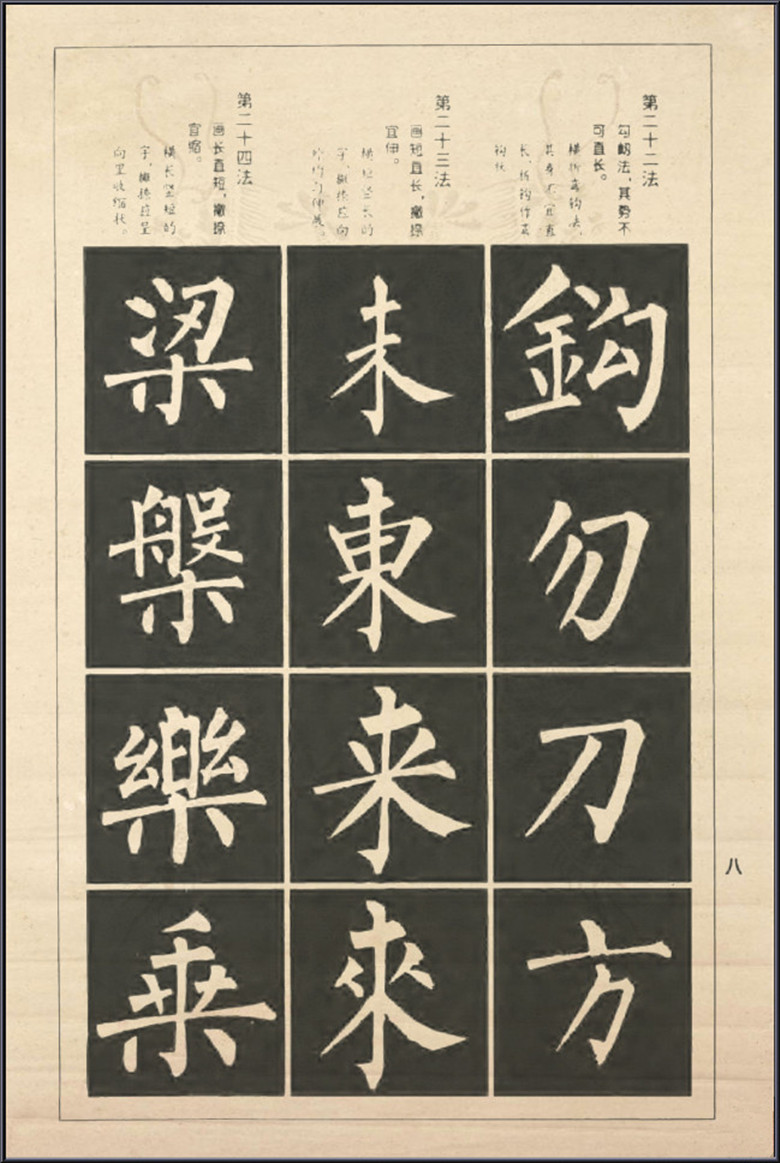 第二十二法
勾法，其势不
可直长。
横折弯钩法，
其身不宜直
长，折钩作弯
钩状
鈎
勿
刀
方
第二十三法
画短直长，撇捺
宜伸。
横短竖长的
字，撇捺应向
外均匀伸展。
未
東
来
來
第二十四法
画长直短，撇捺
宜缩。
横长竖短的
字，撇捺应呈
向里收缩状。
梁
槃
樂
乗
八